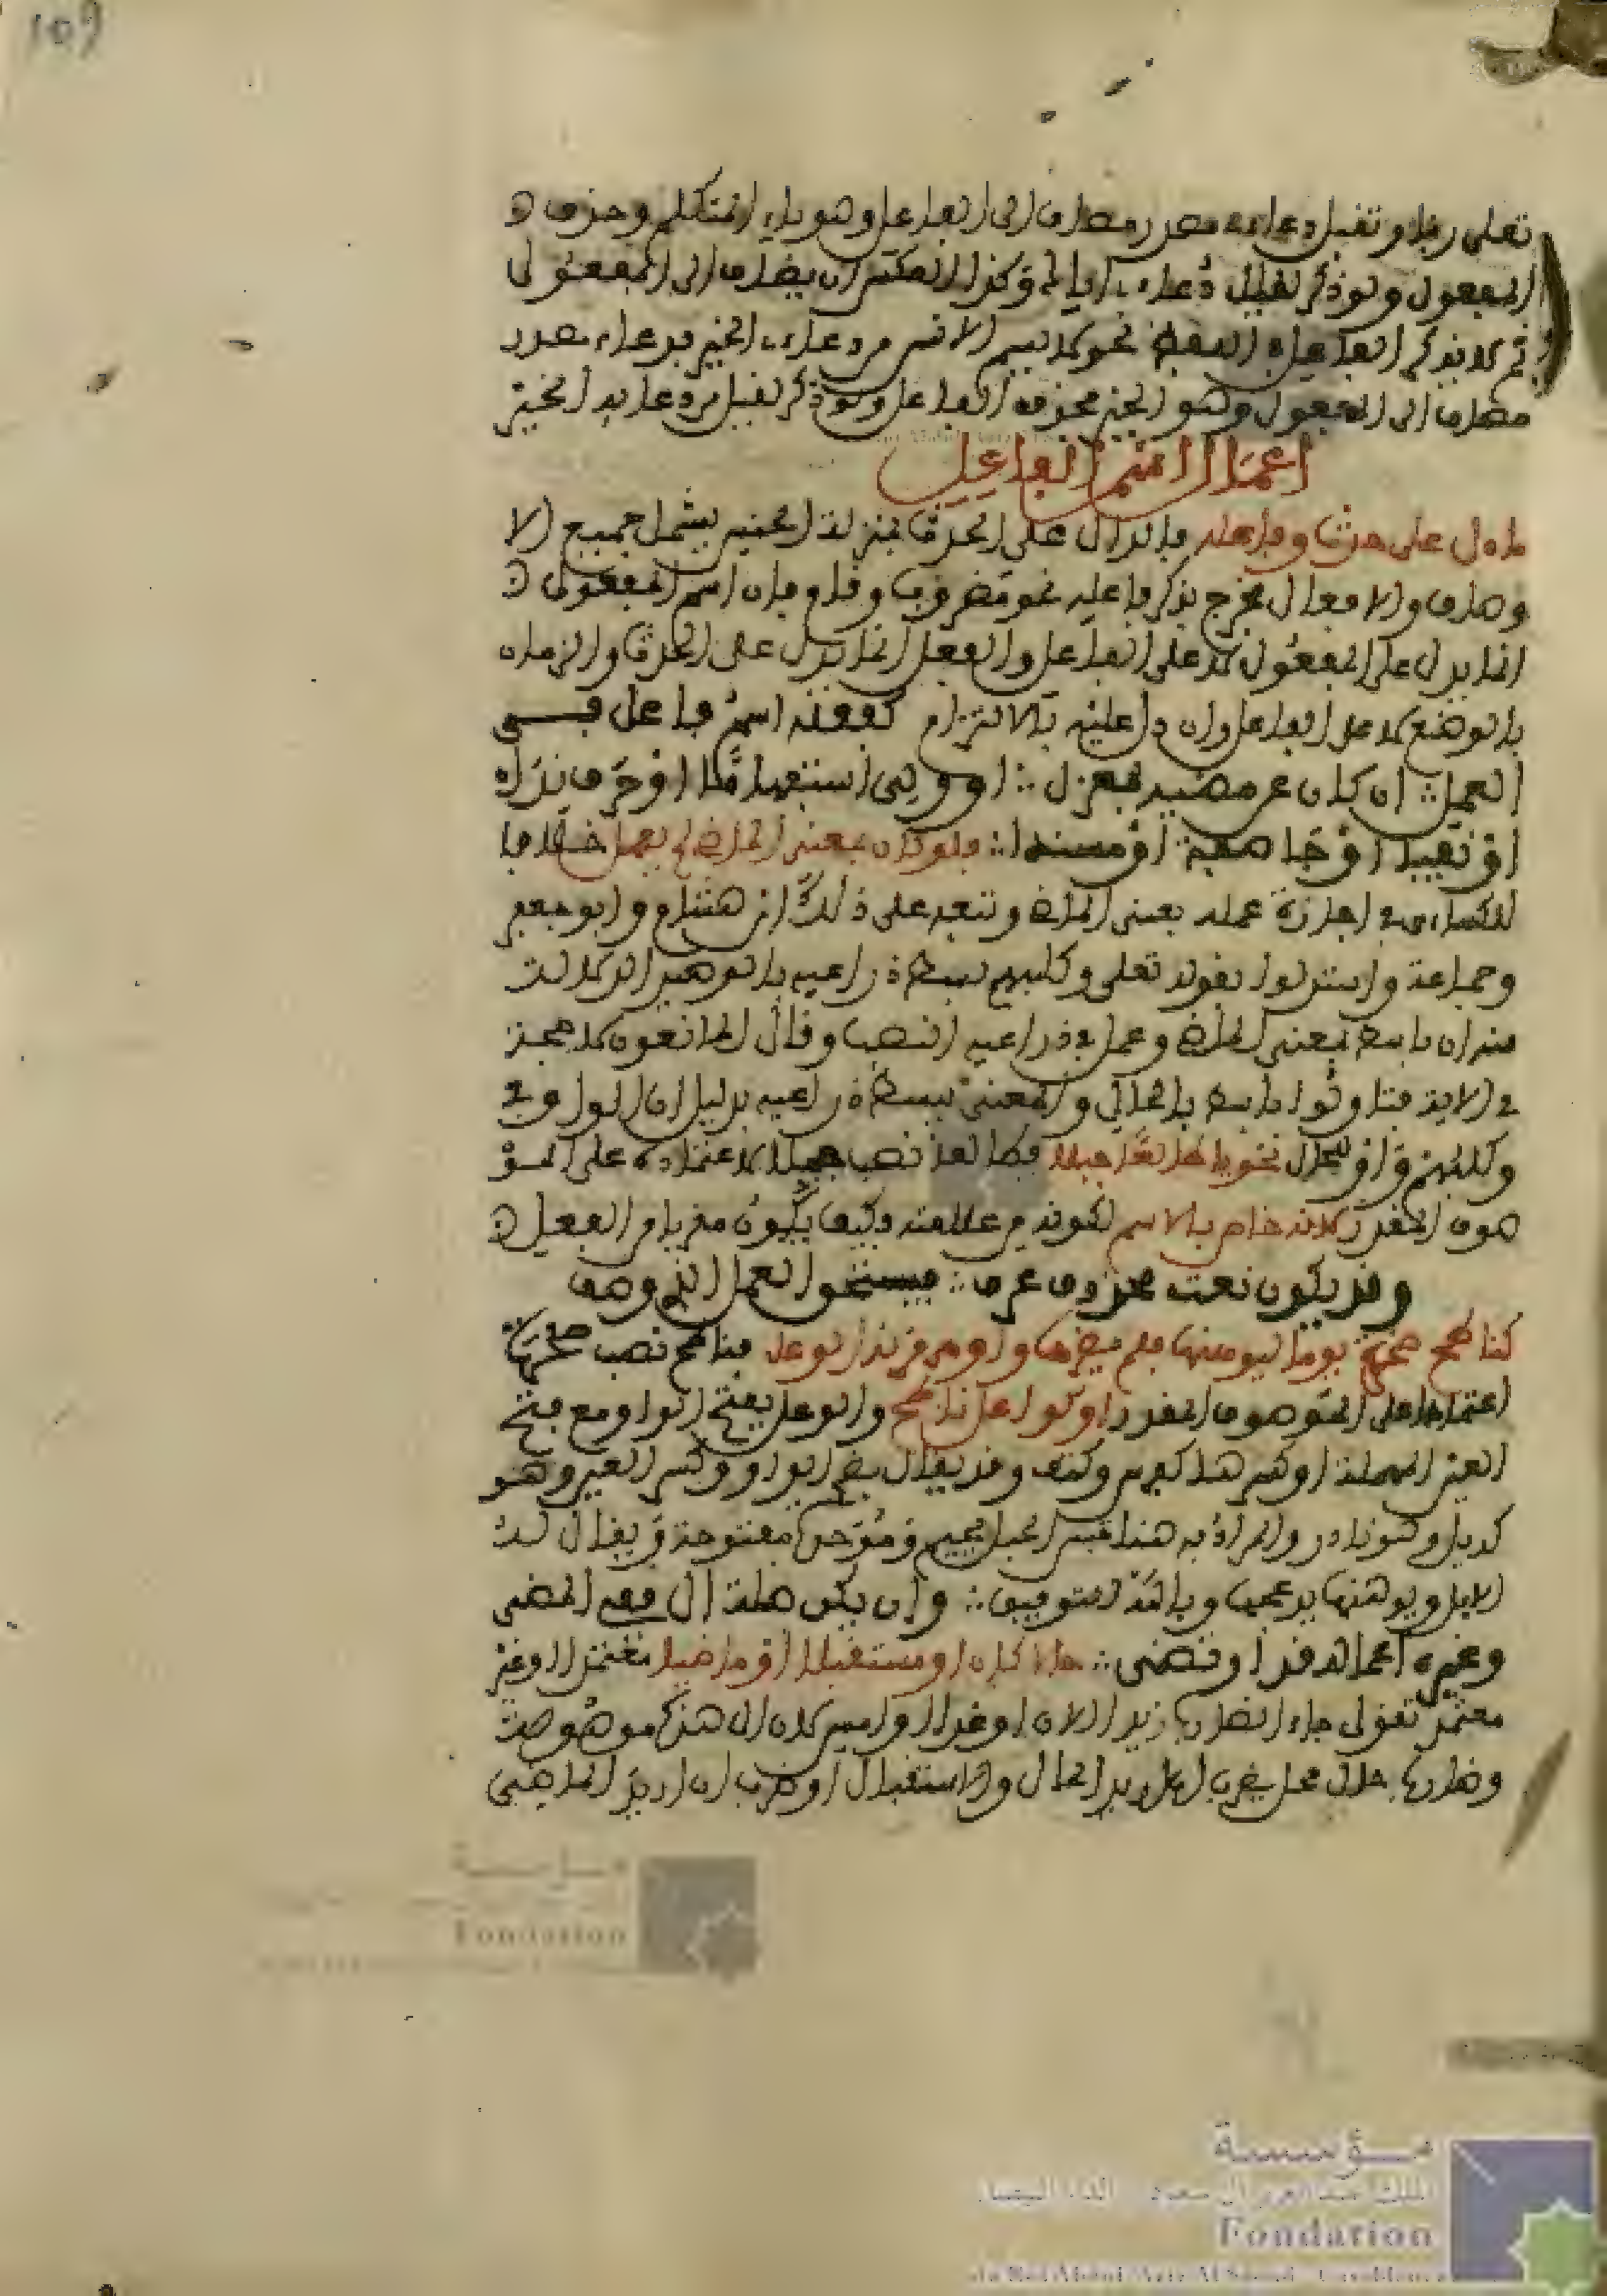 109
تعلى ربنا وتقبل دعاءى مصدر مضاف الى الفاعل وهو ياء المتكلم وحذف
المفعول ولو ذكر لقيل دعاءى اياك وكذا لا يكثر ان يضاف الى المفعول
ثم لا يذكر الفاعل نحو لا يسم الانسن من دعاء الخير فدعاء مصدر
مضاف الى المفعول وهو الخير محذوف الفاعل ولو ذكر لقيل من دعايه الخير
اعمال اسم الفاعل
ما دل على حدث وفاعله فالدال على الحدث بمنزلة الجنس يشمل جميع الا
وصاف والافعال يخرج بذكر فاعله نحو مضروب وقام فان اسم المفعول
انما يدل على المفعول لا على الفاعل والفعل انما يدل على الحدث والزمان
بالوضع لا على الفاعل وان دل عليه بالالتزام كفعله اسم فاعل في
العمل ان كان عن مضيه بمعزل او ولي استفهاما او حرف ندا
او نفيا او جا صفة او مسندا فلو كان بمعنى الماض لم يعمل خلافا
للكساءى في اجازة عمله بمعنى الماض وتبعه على ذلك ابن هشام وابو جعفر
وجماعة واستدلوا بقوله تعلى وكلبهم بسط ذراعيه بالوصيد الدلالة
منه ان باسط بمعنى الماض وعمل في ذراعيه النصب وقال المانعون لا حجة
في الاية فتاولوا باسط بالحالي والمعنى يبسط ذراعيه بدليل ان الواو في
وكلبهم واو الحال نحو يا طالعا جبلا فطالعا نصب جبلا لاعتماده على المو
صوف المقدر لانه خاص بالاسم لكونه من علامته وكيف يكون مقربا من الفعل
وقد يكون نعت محذوف عرف فيستحق العمل الذي وصف
كناطح صخرة يوما ليوهنها فلم يضرها واوهى قرنه الوعل فناطح نصب صخرة
اعتمادا على الموصوف المقدر او كوعل ناطح والوعل بفتح الواو مع فتح
العين المهملة او كسرها كفرس وكتف وقد يقال بضم الواو وكسر العين وهو
كديل وهو نادر والمراد به هنا تيس الجبل بجيم وموحدة مفتوحة ويقال له
الايل ويوهنها يدعجها وبالله التوفيق وان يكن صلة ال ففي المضي
وغيره اعماله قد ارتضى حالا كان او مستقبلا او ماضيا معتمدا او غير
معتمد تقول جاء الضارب زيدا الان او غدا او امس لان ال هذه موصولة
وضارب حال محل يضرب ان اريد الحال والاستقبال او ضرب ان اريد الماضي
مؤسسة
الملك عبد العزيز آل سعود - الدار البيضاء
Fondation
du Roi Abdul-Aziz Al Saoud - Casablanca